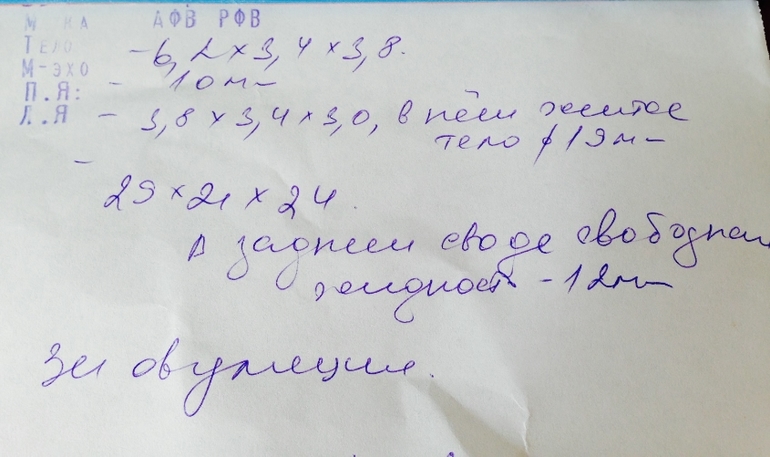 М КА АФВ РФВ
ТЕЛО - 6,2 х 3,4 х 3,8.
М-ЭХО - 10 мм
П.Я: - 3,8 х 3,4 х 3,0, в нём желтое
Л.Я тело ϕ 19 мм
- 29 х 21 х 24.
В заднем своде свободная
жидкость - 12 мм
Эхо овуляции.